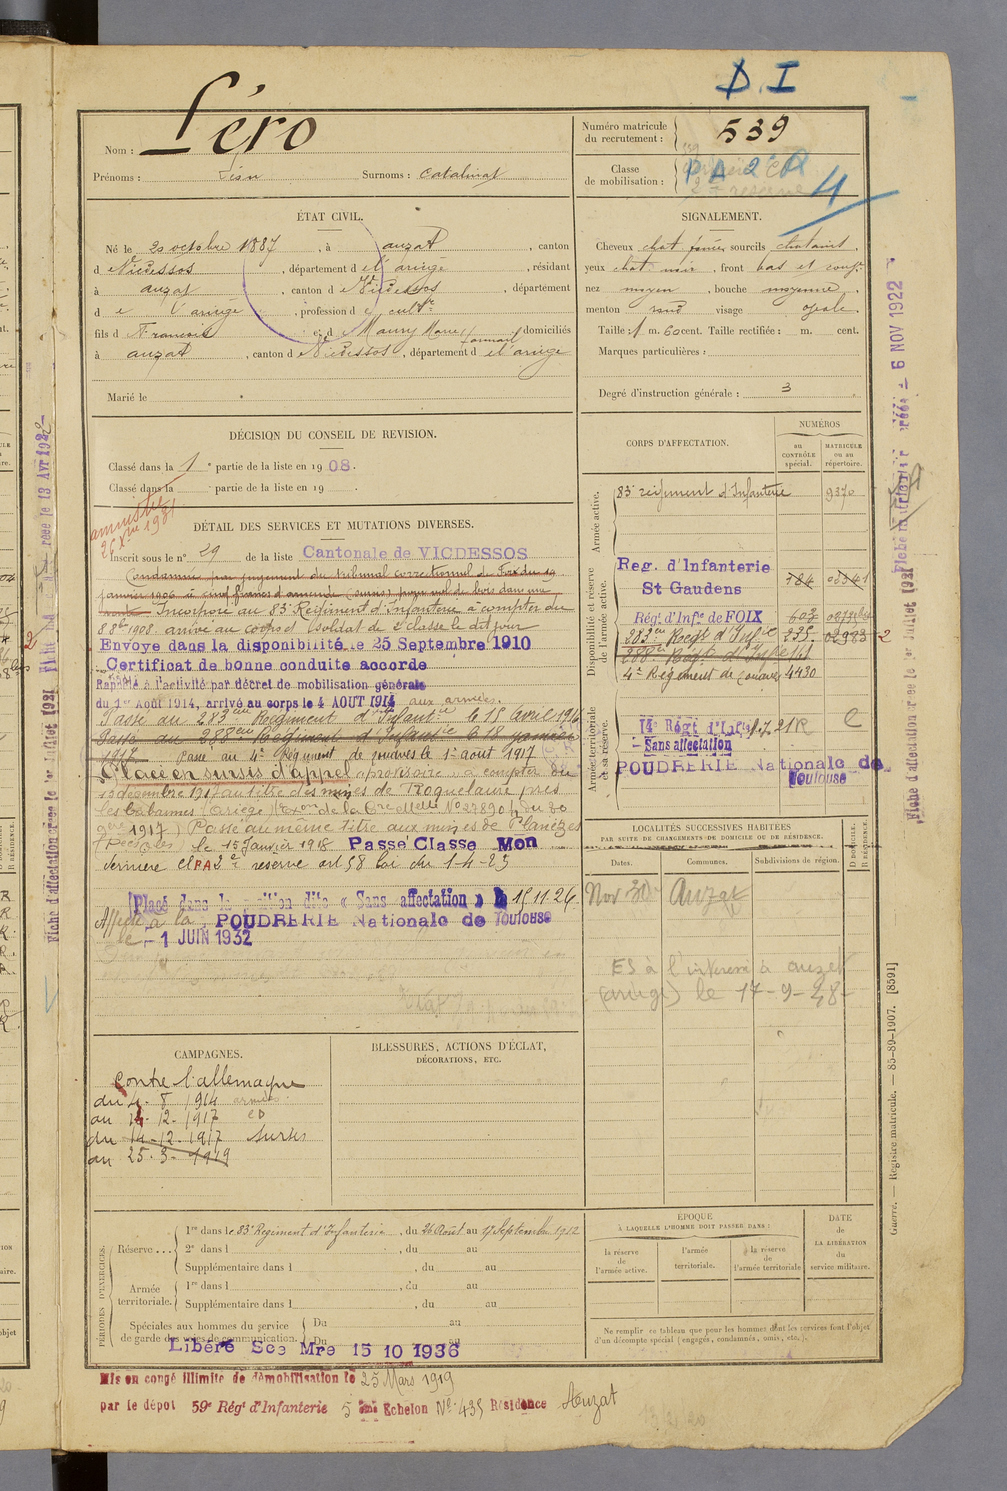 D.I
Léro
Nom :
Prénoms : Jean Surnoms : Catalinat
Numéro matricule du recrutement : 539
Classe de mobilisation :
PA 2e
4
ÉTAT CIVIL.
Né le 20 octobre 1887, à auzat, canton
d Vicdessos, département d el'ariège, résidant
à auzat, canton d e Vicdessos, département
d e l'ariège, profession d e cultr
fils d François et d Maury Marie domiciliés
à auzat, canton d Vicdessos, département d el'ariège
Marié le
SIGNALEMENT.
Cheveux chat foncé sourcils chatains,
yeux chat noir, front bas et
nez moyen, bouche moyenne,
menton rond visage ovale.
Taille : 1 m. 60 cent. Taille rectifiée : m. cent.
Marques particulières :
Degré d'instruction générale : 3
DÉCISION DU CONSEIL DE REVISION.
Classé dans la 1e partie de la liste en 1908.
Classé dans la partie de la liste en 19 .
amnistié
DÉTAIL DES SERVICES ET MUTATIONS DIVERSES.
Inscrit sous le n° 29 de la liste Cantonale de VICDESSOS
Condamné par jugement du tribunal correctionnel de Foix du 19
janvier 1906 à cinq francs d'amende (sursis) pour vol de bois dans une
Incorporé au 83e Régiment d'Infanterie à compter du
8 8bre 1908. arrivé au corps et soldat de 2e classe le dit jour
Envoyé dans la disponibilité le 25 Septembre 1910
Certificat de bonne conduite accordé
Rappelé à l'activité par décret de mobilisation générale
du 1er Août 1914, arrivé au corps le 4 AOUT 1914 aux armées.
Passé au 283eme Régiment d'Infantie le 15 Avril 1916
Passé au 288eme Régiment d'Infantie le 18 janvier
1917 Passé au 4e Régiment de Zouaves le 1er août 1917
Placé en sursis d'appel provisoire à compter du
décembre 1917 au titre des mines de Roquelaure près
les Cabannes (Ariège) (Exon de la Cire elle No 27890 du 30
9bre 1917) Passé au même titre aux mines de Planèzes
le 15 Janvier 1918 Passé Classe Mon
dernière cl PA 2e réserve art 58 loi du 1-4-23
Placé dans la position dite « Sans affectation » le 15 11 26.
Affecté à la POUDRERIE Nationale de Toulouse
le 1 JUIN 1932
CORPS D'AFFECTATION.
NUMÉROS
au CONTRÔLE spécial.
MATRICULE ou au répertoire.
Armée active.
83e régiment d'Infanterie 9370
Disponibilité et réserve de l'armée active.
Reg. d'Infanterie
St Gaudens 784
Régt. d'Infie de FOIX 603
283eme Regt d'Infie 335 02983 -2
288e Regt d'Infie
4e Régiment de Zouaves 4430
Armée territoriale et sa réserve.
14e Régt d'Infie
Sans affectation
POUDRERIE Nationale de
Toulouse
LOCALITÉS SUCCESSIVES HABITÉES
PAR SUITE DE CHANGEMENTS DE DOMICILE OU DE RÉSIDENCE.
Dates. Communes. Subdivisions de région. D DOMICILE. R RÉSIDENCE.
Nov 30 Auzat
ES à l'intéressé à auzat
(ariège) le 17-9-48
CAMPAGNES.
Contre l'allemagne
du 4-8 1914 armées
au 14-12-1917 CD
du 14-12-1917 Sursis
au 25-3-1919
BLESSURES, ACTIONS D'ÉCLAT,
DÉCORATIONS, ETC.
PÉRIODES D'EXERCICES.
Réserve... 1re dans le 83e Regiment d'Infanterie, du 26 Août au 17 Septembre 1912
2e dans l , du au
Supplémentaire dans l , du au
Armée territoriale. 1re dans l , du au
Supplémentaire dans l , du au
Spéciales aux hommes du service
de garde des voies de communication. Du au
Du au
Libéré Sce Mre 15 10 1936
ÉPOQUE
À LAQUELLE L'HOMME DOIT PASSER DANS :
la réserve de l'armée active.
l'armée territoriale.
la réserve de l'armée territoriale
DATE DE LA LIBÉRATION du service militaire.
Ne remplir ce tableau que pour les hommes dont les services font l'objet
d'un décompte spécial (engagés, condamnés, omis, etc.).
Mis en congé illimité de démobilisation le 25 Mars 1919
par le dépôt 59e Régt d'Infanterie 5 ème Echelon No 435 Résidence Auzat
Guerre. — Registre matricule. — 85-89-1907. [8591]
6 NOV 1922
Fiche d'affectation créée le 1er Juillet 1921
13 Avr 1922
Fiche d'affectation créée le 1er Juillet 1921